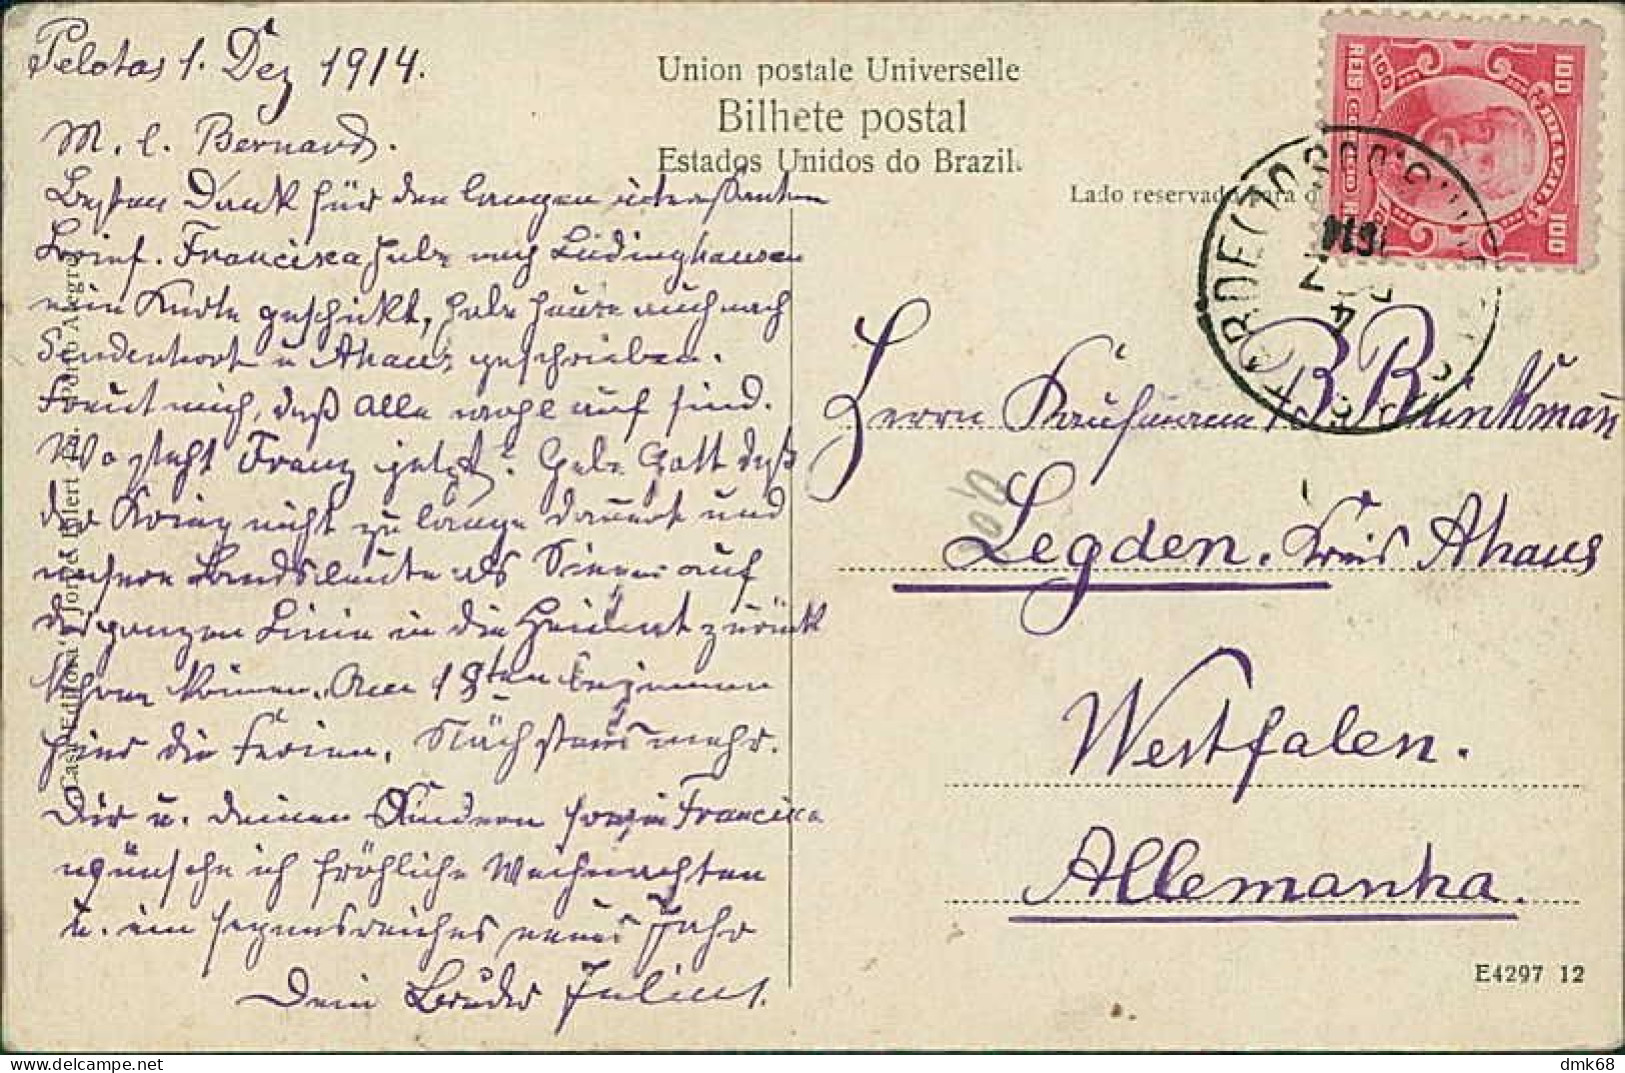 Pelotas 1. Dez 1914.
M. l. Bernard.
Besten Dank für den langen interessanten
Brief. Francisca habe nach Lüdinghausen
eine Karte geschickt, habe heute auch nach
Sendenhorst u Ahaus geschrieben.
Freut mich, daß Alle wohl auf sind.
Wo steht Franz jetzt? Gebe Gott daß
der Krieg nicht zu lange dauert und
unsere Landsleute als Sieger auf
der ganzen Linie in die Heimat zurück
kehren können. Am 19ten beginnen
hier die Ferien. Nächstens mehr.
Dir u. deinen Kindern sowie Francisca
wünsche ich fröhliche Weihnachten
u. ein segensreiches neues Jahr
Dein Bruder Julius.
Union postale Universelle
Bilhete postal
Estados Unidos do Brazil.
Lado reservado para o
BRAZIL
100
100
100
REIS
1914
4
Herrn Kaufmann B. Brinkman
Legden. Kreis Ahaus
Westfalen.
Allemanha.
E4297 12
Porto Alegre
dmk68